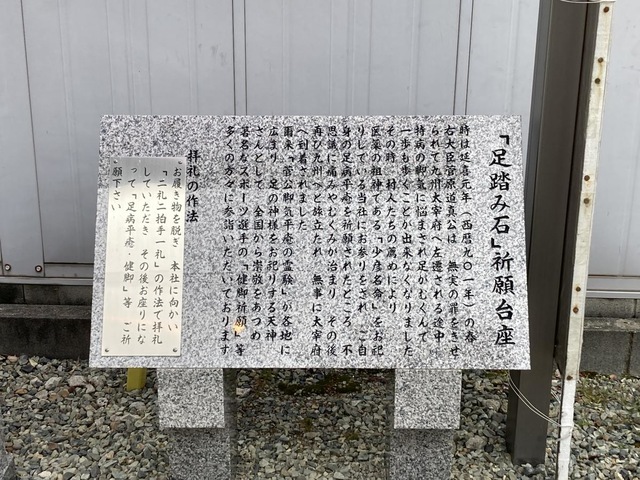 「足踏み石」祈願台座
時は延喜元年（西暦九〇一年）の春
右大臣菅原道真公は 無実の罪をきせ
られて九州大宰府へ左遷される途中
持病の脚気に悩まされ足がむくんで
一歩も歩くことが出来なくなりました
その時 村人たちの薦めにより
医薬の祖神である「少彦名命」をお祀
りしている当社にお参りをされ ご自
身の足病平癒を祈願されたところ 不
思議に痛みやむくみが治まり その後
再び九州へと旅立たれ 無事に大宰府
へ到着されました
爾来「菅公脚気平癒の霊験」が各地に
広まり 足の神様をお祀りする天神
さんとして 全国から崇敬をあつめ
著名なスポーツ選手の「健脚祈願」等
多くの方々に参詣いただいております
拝礼の作法
お履き物を脱ぎ 本社に向かい
「二礼二拍手一礼」の作法で拝礼
していただき その後お座りにな
って「足病平癒・健脚」等 ご祈
願下さい